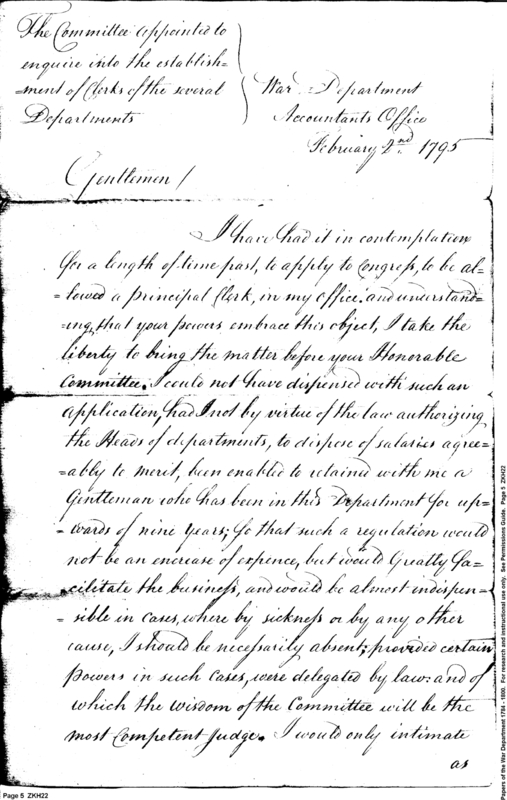 The Committee appointed to
enquire into the establish-
-ment of Clerks of the several
Departments
War Department
Accountants Office
February 2nd. 1795
Gentlemen /
I have had it in contemplation
for a length of time past, to apply to Congress, to be al-
-lowed a principal Clerk, in my office: and understand-
-ing, that your powers embrace this object, I take the
liberty to bring the matter before your Honorable
Committee. I could not have dispensed with such an
application, had I not by virtue of the law authorizing
the Heads of departments, to dispose of salaries agree-
-ably to merit, been enabled to retained with me a
Gentleman who has been in this Department for up-
-wards of nine years; So that such a regulation would
not be an encrease of expence, but would Greatly fa-
-cilitate the business, and would be almost indispen-
-sible in cases, where by sickness or by any other
cause, I should be necessarily absent; provided certain
powers in such cases, were delegated by law: and of
which the wisdom of the Committee will be the
most Competent Judge. I would only intimate
as
Page 5 ZKH22
Papers of the War Department 1784 - 1800. For research and instructional use only. See Permissions Guide. Page 5 ZKH22